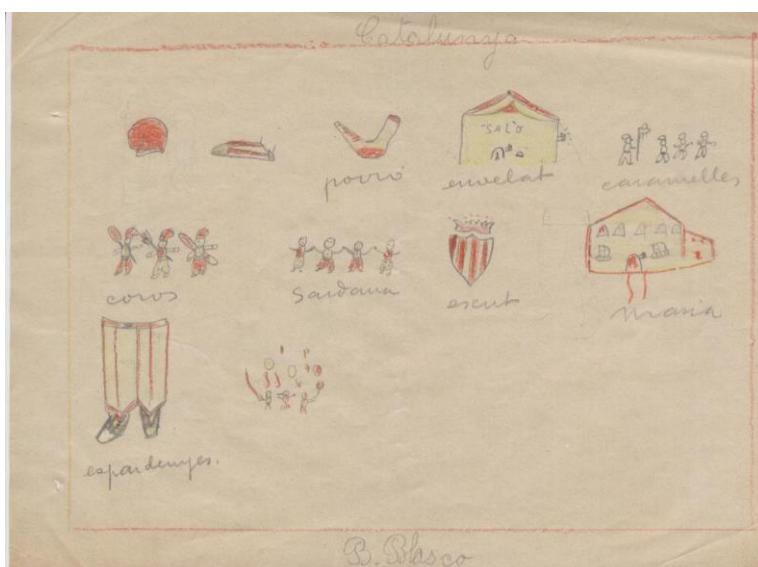 Catalunya
porró
envelat
caramelles
coros
Sardana
escut
masia
espardenyes.
B. Blasco